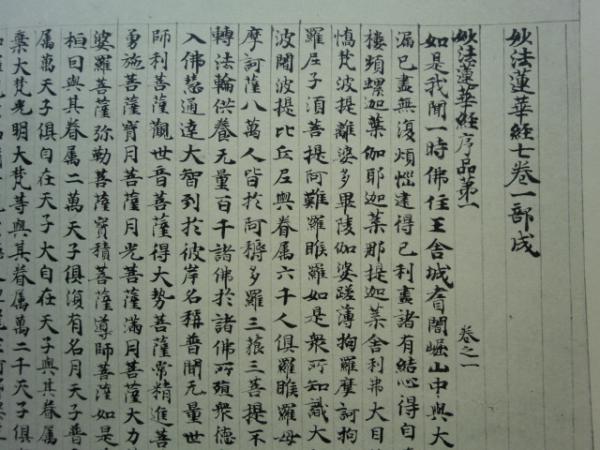 妙法蓮華經七卷一部成
妙法蓮華經序品第一 卷之一
如是我聞一時佛住王舍城耆闍崛山中與大
漏已盡無復煩惱逮得已利盡諸有結心得自
樓頻螺迦葉伽耶迦葉那提迦葉舍利弗大目
憍梵波提離婆多畢陵伽婆蹉薄拘羅摩訶拘
羅尼子須菩提阿難羅睺羅如是衆所知識大
波闍波提比丘尼與眷属六千人俱羅睺羅母
摩訶薩八萬人皆於阿耨多羅三藐三菩提不
轉法輪供養无量百千諸佛於諸佛所殖衆德
入佛慧通達大智到於彼岸名稱普聞无量世
師利菩薩觀世音菩薩得大勢菩薩常精進菩
勇施菩薩寶月菩薩月光菩薩滿月菩薩大力
婆羅菩薩弥勒菩薩寶積菩薩導師菩薩如是
桓因與其眷属二萬天子俱復有名月天子普
属萬天子俱自在天子大自在天子與其眷属
棄大梵光明大梵等與其眷属萬二千天子俱